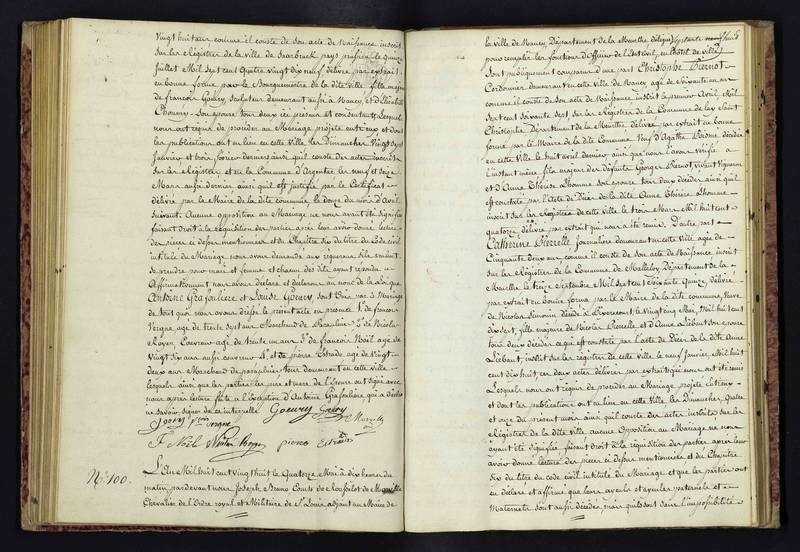 vingt huit ans comme il conste de son acte de Naissance inscrit
sur les Régistres de la ville de Saarbruck pays prussien le Quinze
Juillet Mil sept cent Quatre vingt dix neuf délivré par extrait
en bonne forme par le Bourguemestre de la dite ville fille majeure
de francois Goeury Sculpteur demeurant aussi à Nancy et d'Elisabeth
son épouse tous deux ici présens et consentants, Lesquels
nous ont requis de procéder au Mariage projeté entr'eux et dont
les publications ont eu lieu en cette ville les Dimanches Vingt sept
Janvier et trois février derniers ainsi qu'il conste des actes inscrits
sur les Régistres et en la Commune d'Argentre les neuf et Seize
Mars aussi dernier ainsi qu'il est justifié par le Certificat
délivré par le Maire de la dite commune le douze du mois d'Avril
suivant. Aucune opposition au Mariage ne nous ayant été signifiée
faisant droit à la réquisition des parties après leur avoir donné lecture
des pièces ci dessus mentionnées et du Chapitre six du titre du Code civil
intitulé du Mariage nous avons demandé aux requérans s'ils veulent
se prendre pour mari et femme et chacun d'eux ayant répondu
Affirmativement nous avons déclaré et déclarons au nom de la Loi que
Antoine Grafouliere et Louise Goeury sont Unis par le Mariage
de tout quoi nous avons dressé le présent acte en présence 1°. de francois
Vergne âgé de trente sept ans Marchand de Parapluie 2°. de Nicolas
Royer, Laveur âgé de trente un ans 3°. de francois Noël âgé de
Vingt six ans aussi couvreur 4°. et de pierre Estrade âgé de vingt
deux ans Marchand de parapluies tous demeurant en cette ville
lesquels ainsi que les parties les père et mère de l'épouse ont signé avec
nous après lecture faite à l'Exception d'Antoine Grafouliere qui a déclaré
ne savoir signer de ce interpellé. Goeury Goeury
Goeury f.cois Vergne
F. Noël pierre Estrade
N°. 100. L'an Mil huit cent vingt huit le Quatorze Mai à dix heures du
matin pardevant nous Joseph Bruno Comte de
Chevalier de l'Ordre royal et Militaire de St Louis adjoint au Maire de
la ville de Nancy Département de la Meurthe délégué
pour remplir les fonctions d'officier de l'Etat civil, en l'hotel de ville
sont publiquement comparus d'une part Christophe Piernot
Cordonnier demeurant en cette Ville de Nancy âgé de Soixante un ans
comme il conste de son acte de Naissance inscrit le premier Avril Mil
sept cent soixante sept, sur les Régistres de la Commune de Ley Saint
Christophe, Département de la Meurthe délivré par extrait en bonne
forme par le Maire de la dite Commune Veuf d'Agathe décédée
en cette ville le huit avril dernier ainsi que nous l'avons vérifié à
l'instant même fils majeur des défunts Georges Piernot vivant Vigneron
et d'Anne Thérèse Lhomme son épouse tous deux décédés ainsi qu'il
est constaté par l'acte de Décès de la dite Anne Thérèse Lhomme
inscrit sur les Régistres de cette ville le trois Mars Mil huit cent
quatorze délivré par extrait qui nous a été remis, D'autre part
Catherine Pierrelle journalière demeurant en cette ville âgée de
Cinquante deux ans comme il conste de son acte de Naissance inscrit
sur les Régistres de la Commune de Malleloy Département de la
Meurthe le treize Septembre Mil sept cent soixante Quinze, délivré
par extrait en bonne forme par le Maire de la dite commune, Veuve
de Nicolas Simonin décédé à le vingt cinq Mai, Mil huit cent
dix sept, fille majeure de Nicolas Pierrelle et d'Anne son épouse
tous deux décédés ce qui est constaté par l'acte de Décès de la dite Anne
inscrit sur les régistres de cette ville le neuf janvier Mil huit
cent dix huit, ces deux actes délivrés par extrait qui nous ont été remis
Lesquels nous ont requis de procéder au Mariage projeté entr'eux
et dont les publications ont eu lieu en cette ville les Dimanches Quatre
et onze du présent mois ainsi qu'il conste des actes inscrits sur les
Régistres de la dite ville aucune Opposition au Mariage ne nous
ayant été signifiée faisant droit à la réquisition des parties après leur
avoir donné lecture des pièces ci dessus mentionnées et du Chapitre
Six du titre du code civil intitulé du Mariage et que les parties ont
eu déclaré et affirmé que leurs ayeuls et ayeules paternels et
Maternels sont aussi décédés, mais qu'ils sont dans l'impossibilité